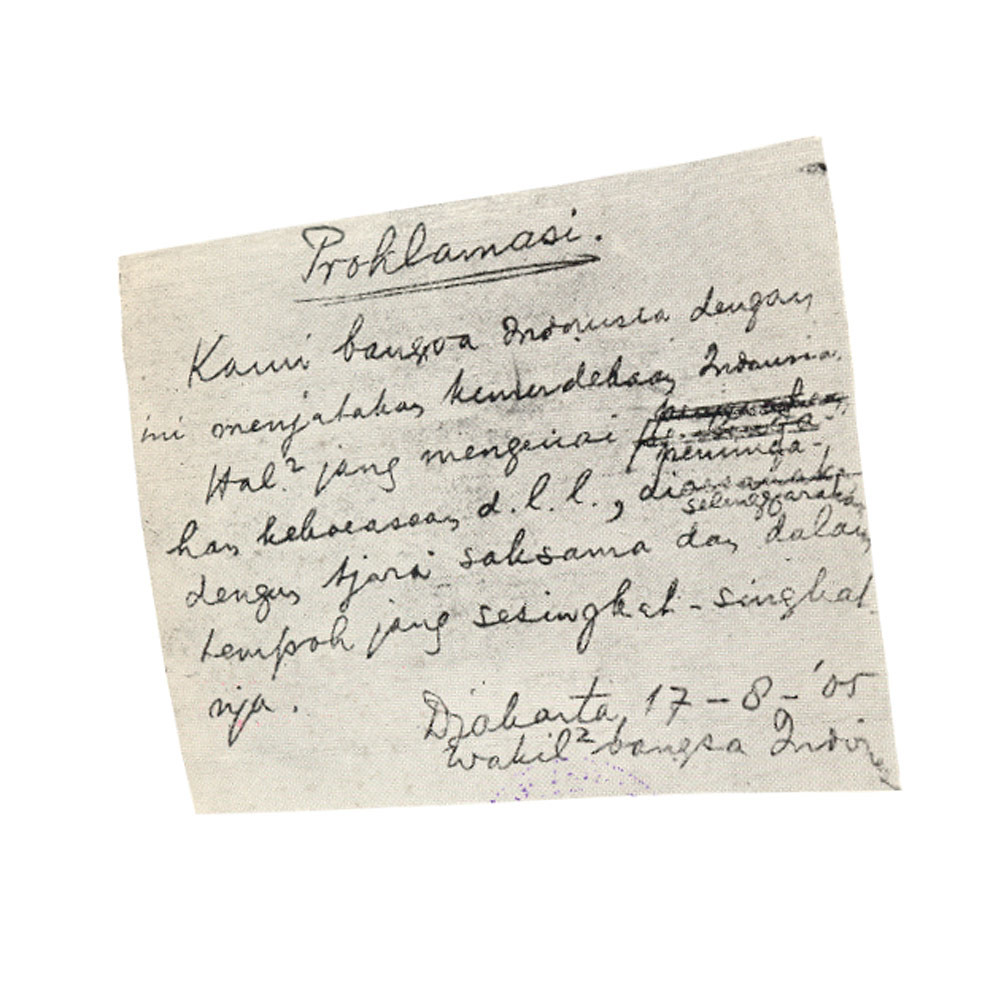 Proklamasi.
Kami bangsa Indonesia dengan
ini menjatakan kemerdekaan Indonesia.
Hal² jang mengenai peminda-
han kekoeasaan d.l.l., di
selenggarakan
dengan tjara saksama dan dalam
tempoh jang sesingkat-singkat
nja.
Djakarta, 17-8-'05
Wakil² bangsa Indon